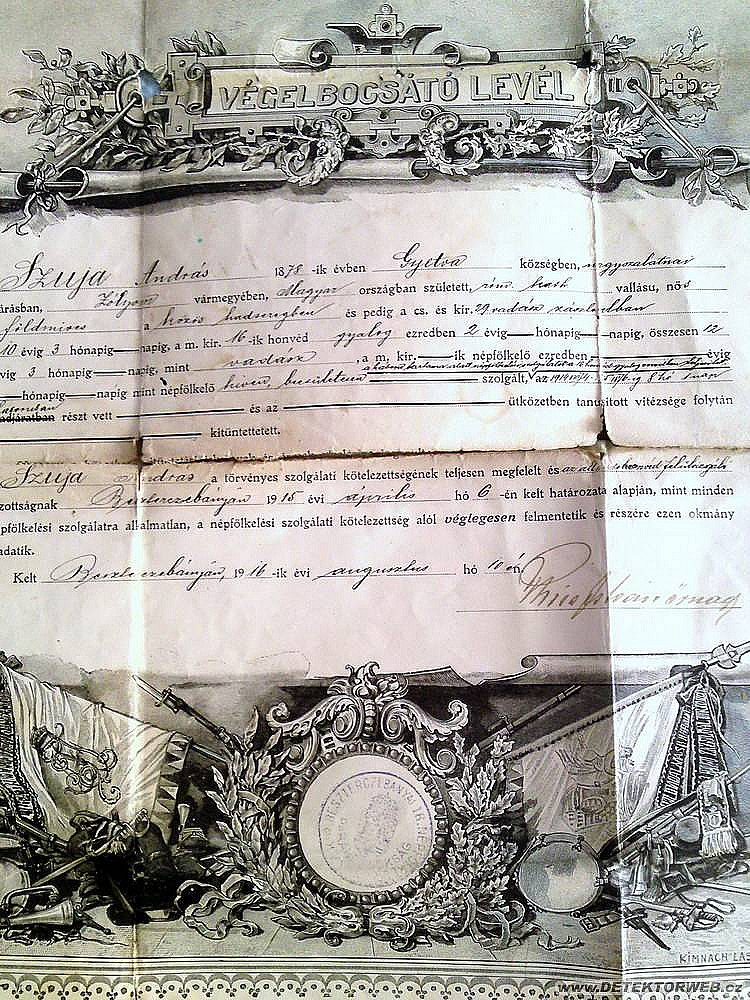 VÉGELBOCSÁTÓ LEVÉL
Szuja András 1878-ik évben Gyetva községben, nagyszalatnai
járásban, Zólyom vármegyében, Magyar országban született, róm. kath vallásu, nős
földmíves a közös hadseregben és pedig a cs. és kir. 29 vadász zászlóaljban
10 évig 3 hónapig napig, a m. kir. 16-ik honvéd gyalog ezredben 2 évig hónapig napig, összesen 12
évig 3 hónapig napig, mint vadász, a m. kir. -ik népfölkelő ezredben évig
hónapig napig mint népfölkelő híven, becsületesen szolgált,
hadjáratban részt vett és az ütközetben tanusított vitézsége folytán
kitüntettetett.
Szuja András a törvényes szolgálati kötelezettségének teljesen megfelelt és az
bizottságnak Beszterczebányán 1915 évi április hó 6-én kelt határozata alapján, mint minden
népfölkelési szolgálatra alkalmatlan, a népfölkelési szolgálati kötelezettség alól véglegesen felmentetik és részére ezen okmány
kiadatik.
Kelt Beszterczebányán, 1916-ik évi augusztus hó 10 én.
BESZTERCZEBÁNYAI
KIMNACH LÁS
www.DETEKTORWEB.cz